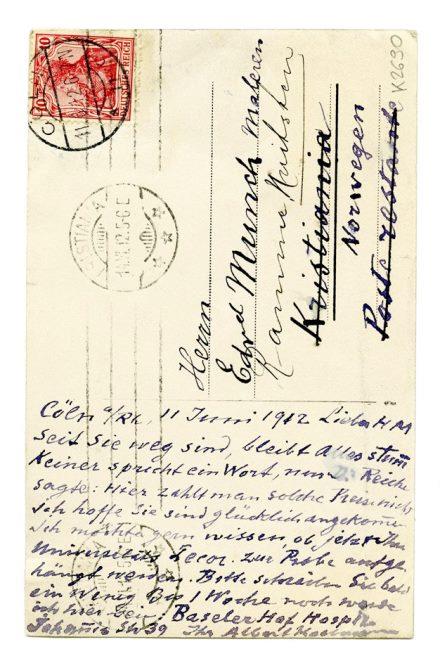 K2690
10
10
DEUTSCHES REICH
CÖLN
11
KRISTIANIA
12.5-6 E
Herrn
Edvd Munch Maleren
Kristiania
Norwegen
Poste restante
Cöln a/Rh, 11 Juni 1912 Lieber H M
Seit Sie weg sind, bleibt Alles stum
Keiner spricht ein Wort, nur Reiche
sagte: Hier zahlt man solche Preise nich
Ich hoffe Sie sind glücklich angekome
Ich möchte gern wissen, ob jetzt Ihre
Universitäts Decor. zur Probe aufge
hängt werden. Bitte schreiben Sie bald
ein wenig Bis 1 Woche noch werde
ich hier sein: Baseler Hof Hospiz
Johannis Str 39 Ihr Albert Kollmann